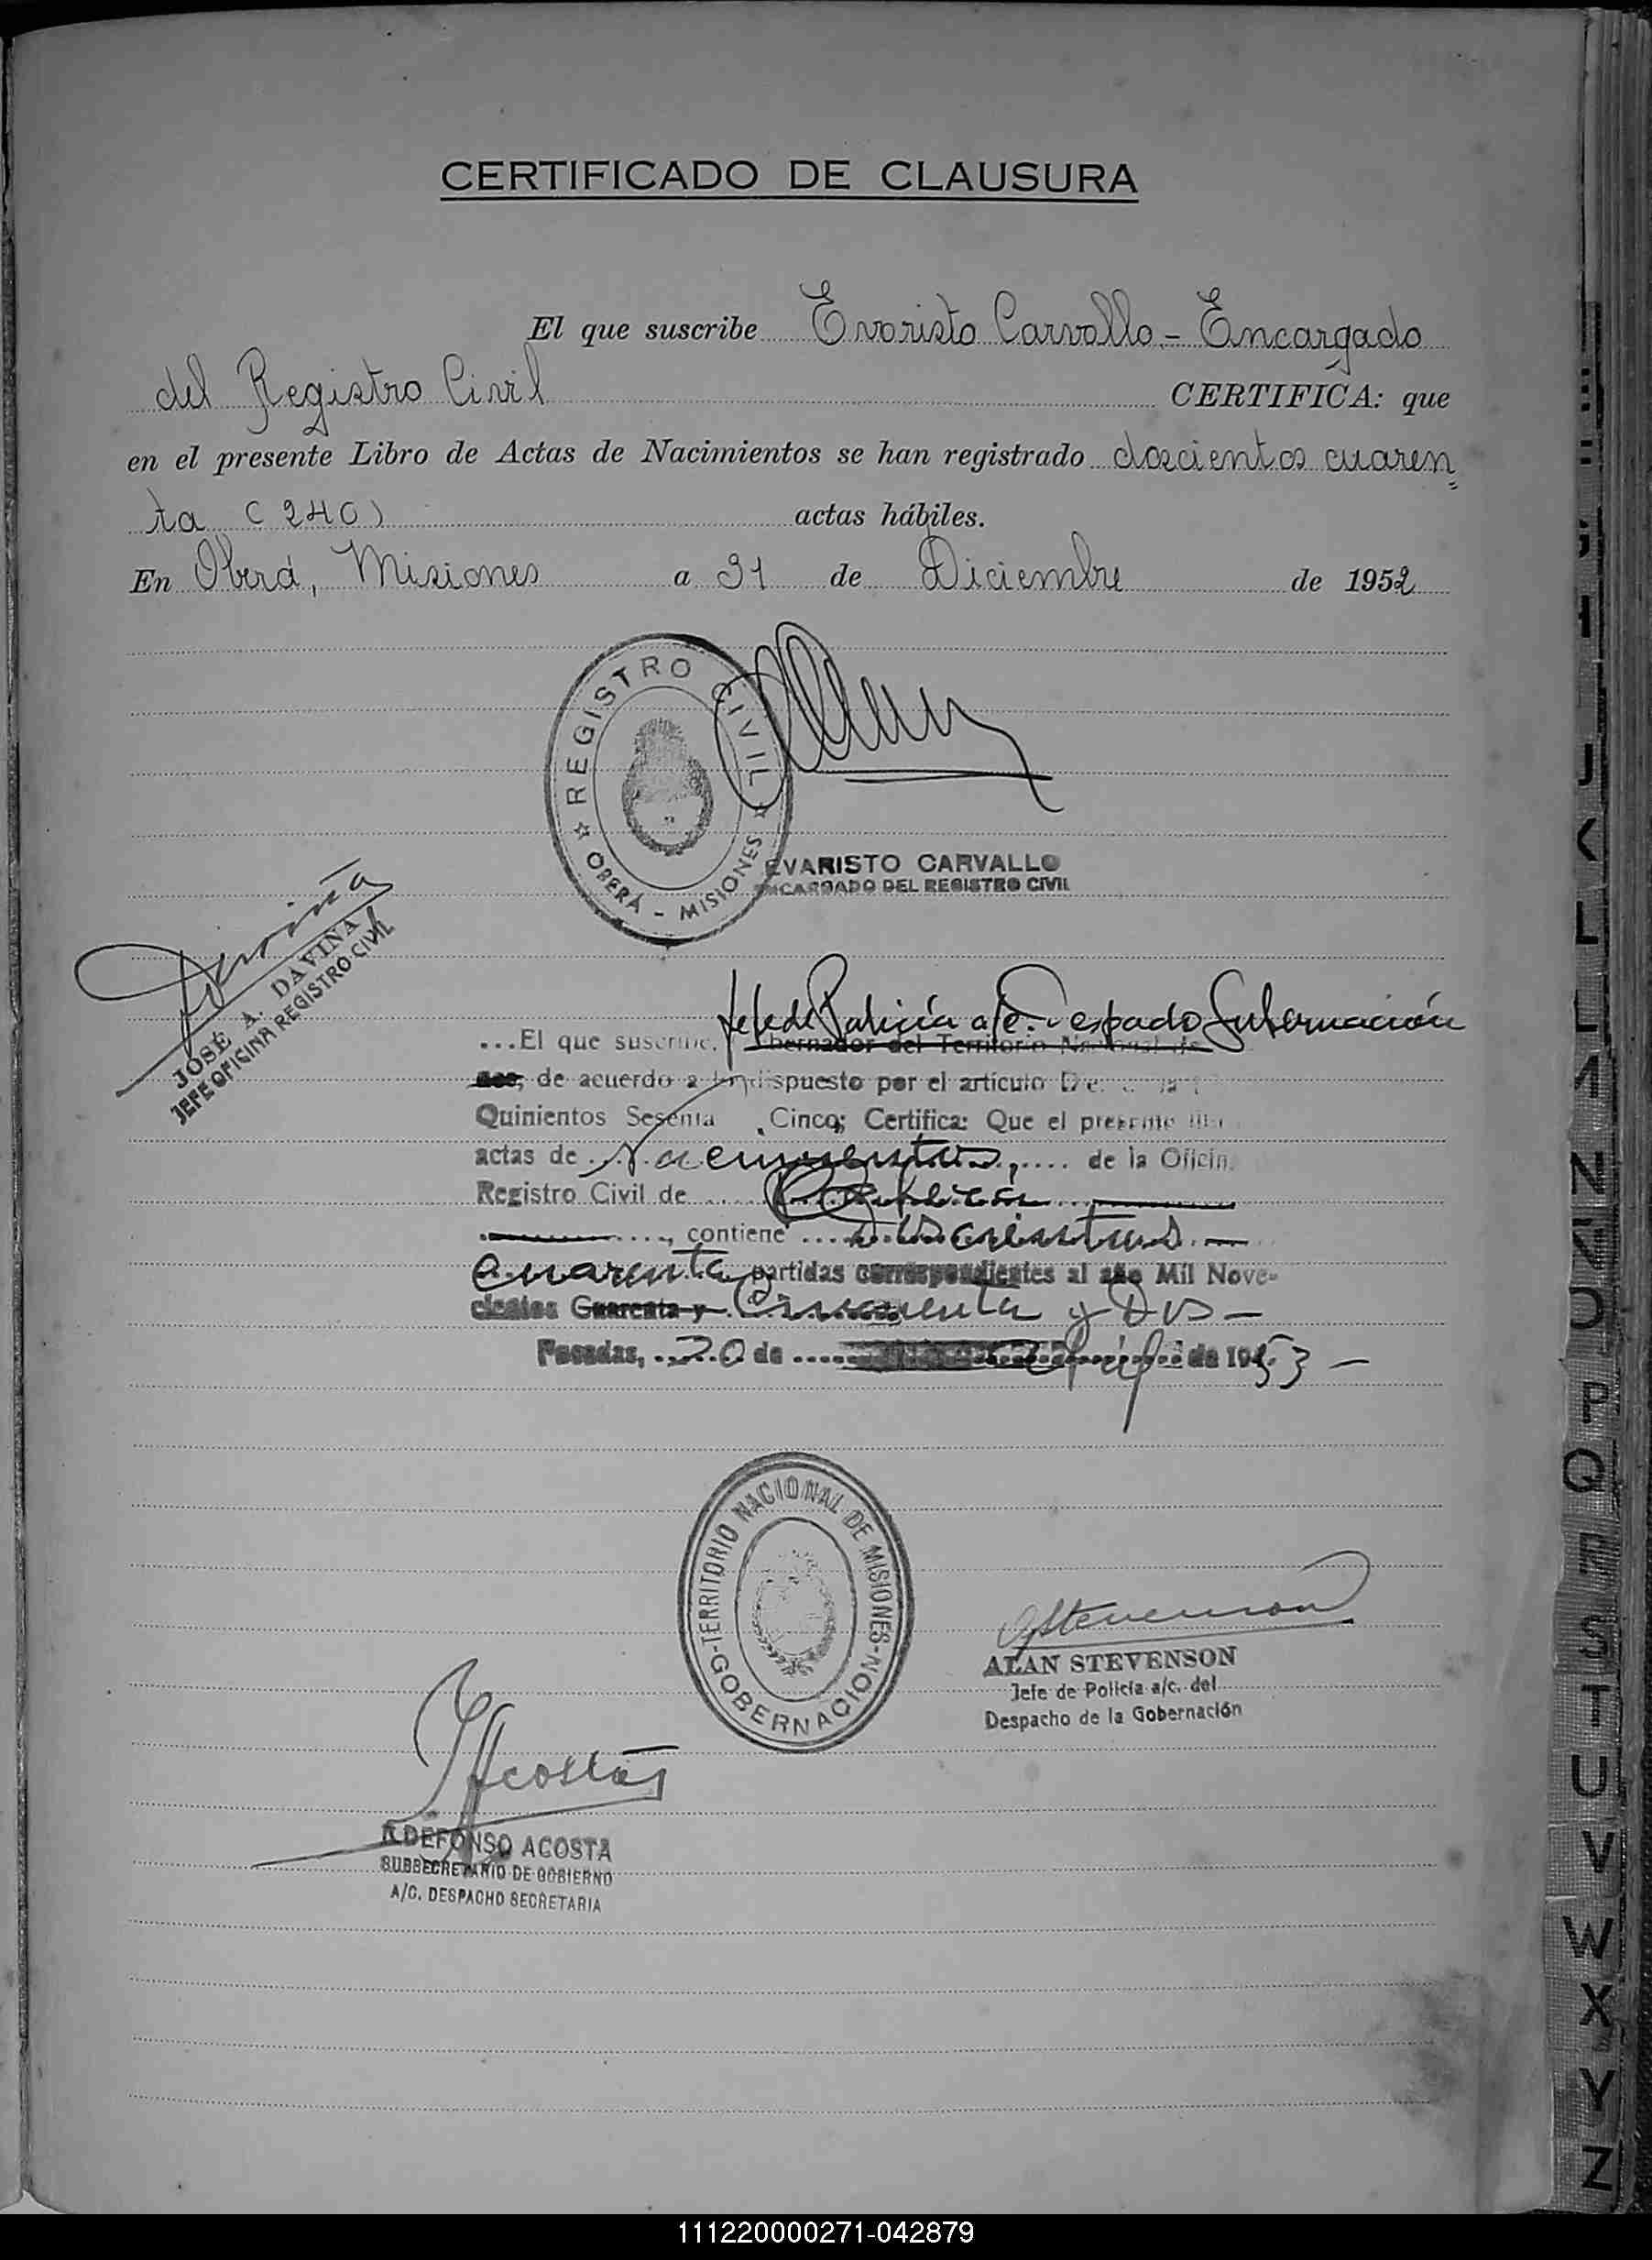 CERTIFICADO DE CLAUSURA
El que suscribe Evaristo Carvallo.- Encargado
del Registro Civil CERTIFICA: que
en el presente Libro de Actas de Nacimientos se han registrado doscientos cuaren=
ta (240) actas hábiles.
En Oberá, Misiones a 31 de Diciembre de 1952
REGISTRO CIVIL
OBERÁ - MISIONES
EVARISTO CARVALLO
ENCARGADO DEL REGISTRO CIVIL
Daviña
JOSÉ A. DAVIÑA
JEFE OFICINA REGISTRO CIVIL
Jefe de Policía a/c. Despacho Gobernación
...El que suscribe, bernador del Territorio Nacional de
nes, de acuerdo a lo dispuesto por el artículo
Quinientos Sesenta Cinco; Certifica: Que el presente
actas de Nacimientos, de la Oficin
Registro Civil de
contiene doscientos
cuarenta partidas correspondientes al año Mil Nove-
cientos Cuarenta y Cincuenta y Dos -
Posadas, 20 de de 1953 -
TERRITORIO NACIONAL DE MISIONES
GOBERNACION
AStevenson
ALAN STEVENSON
Jefe de Policía a/c. del
Despacho de la Gobernación
Acosta
ILDEFONSO ACOSTA
SUBSECRETARIO DE GOBIERNO
A/C. DESPACHO SECRETARIA
J
K
L
M
N
Ñ
O
P
Q
R
S
T
U
V
W
X
Y
Z
111220000271-042879